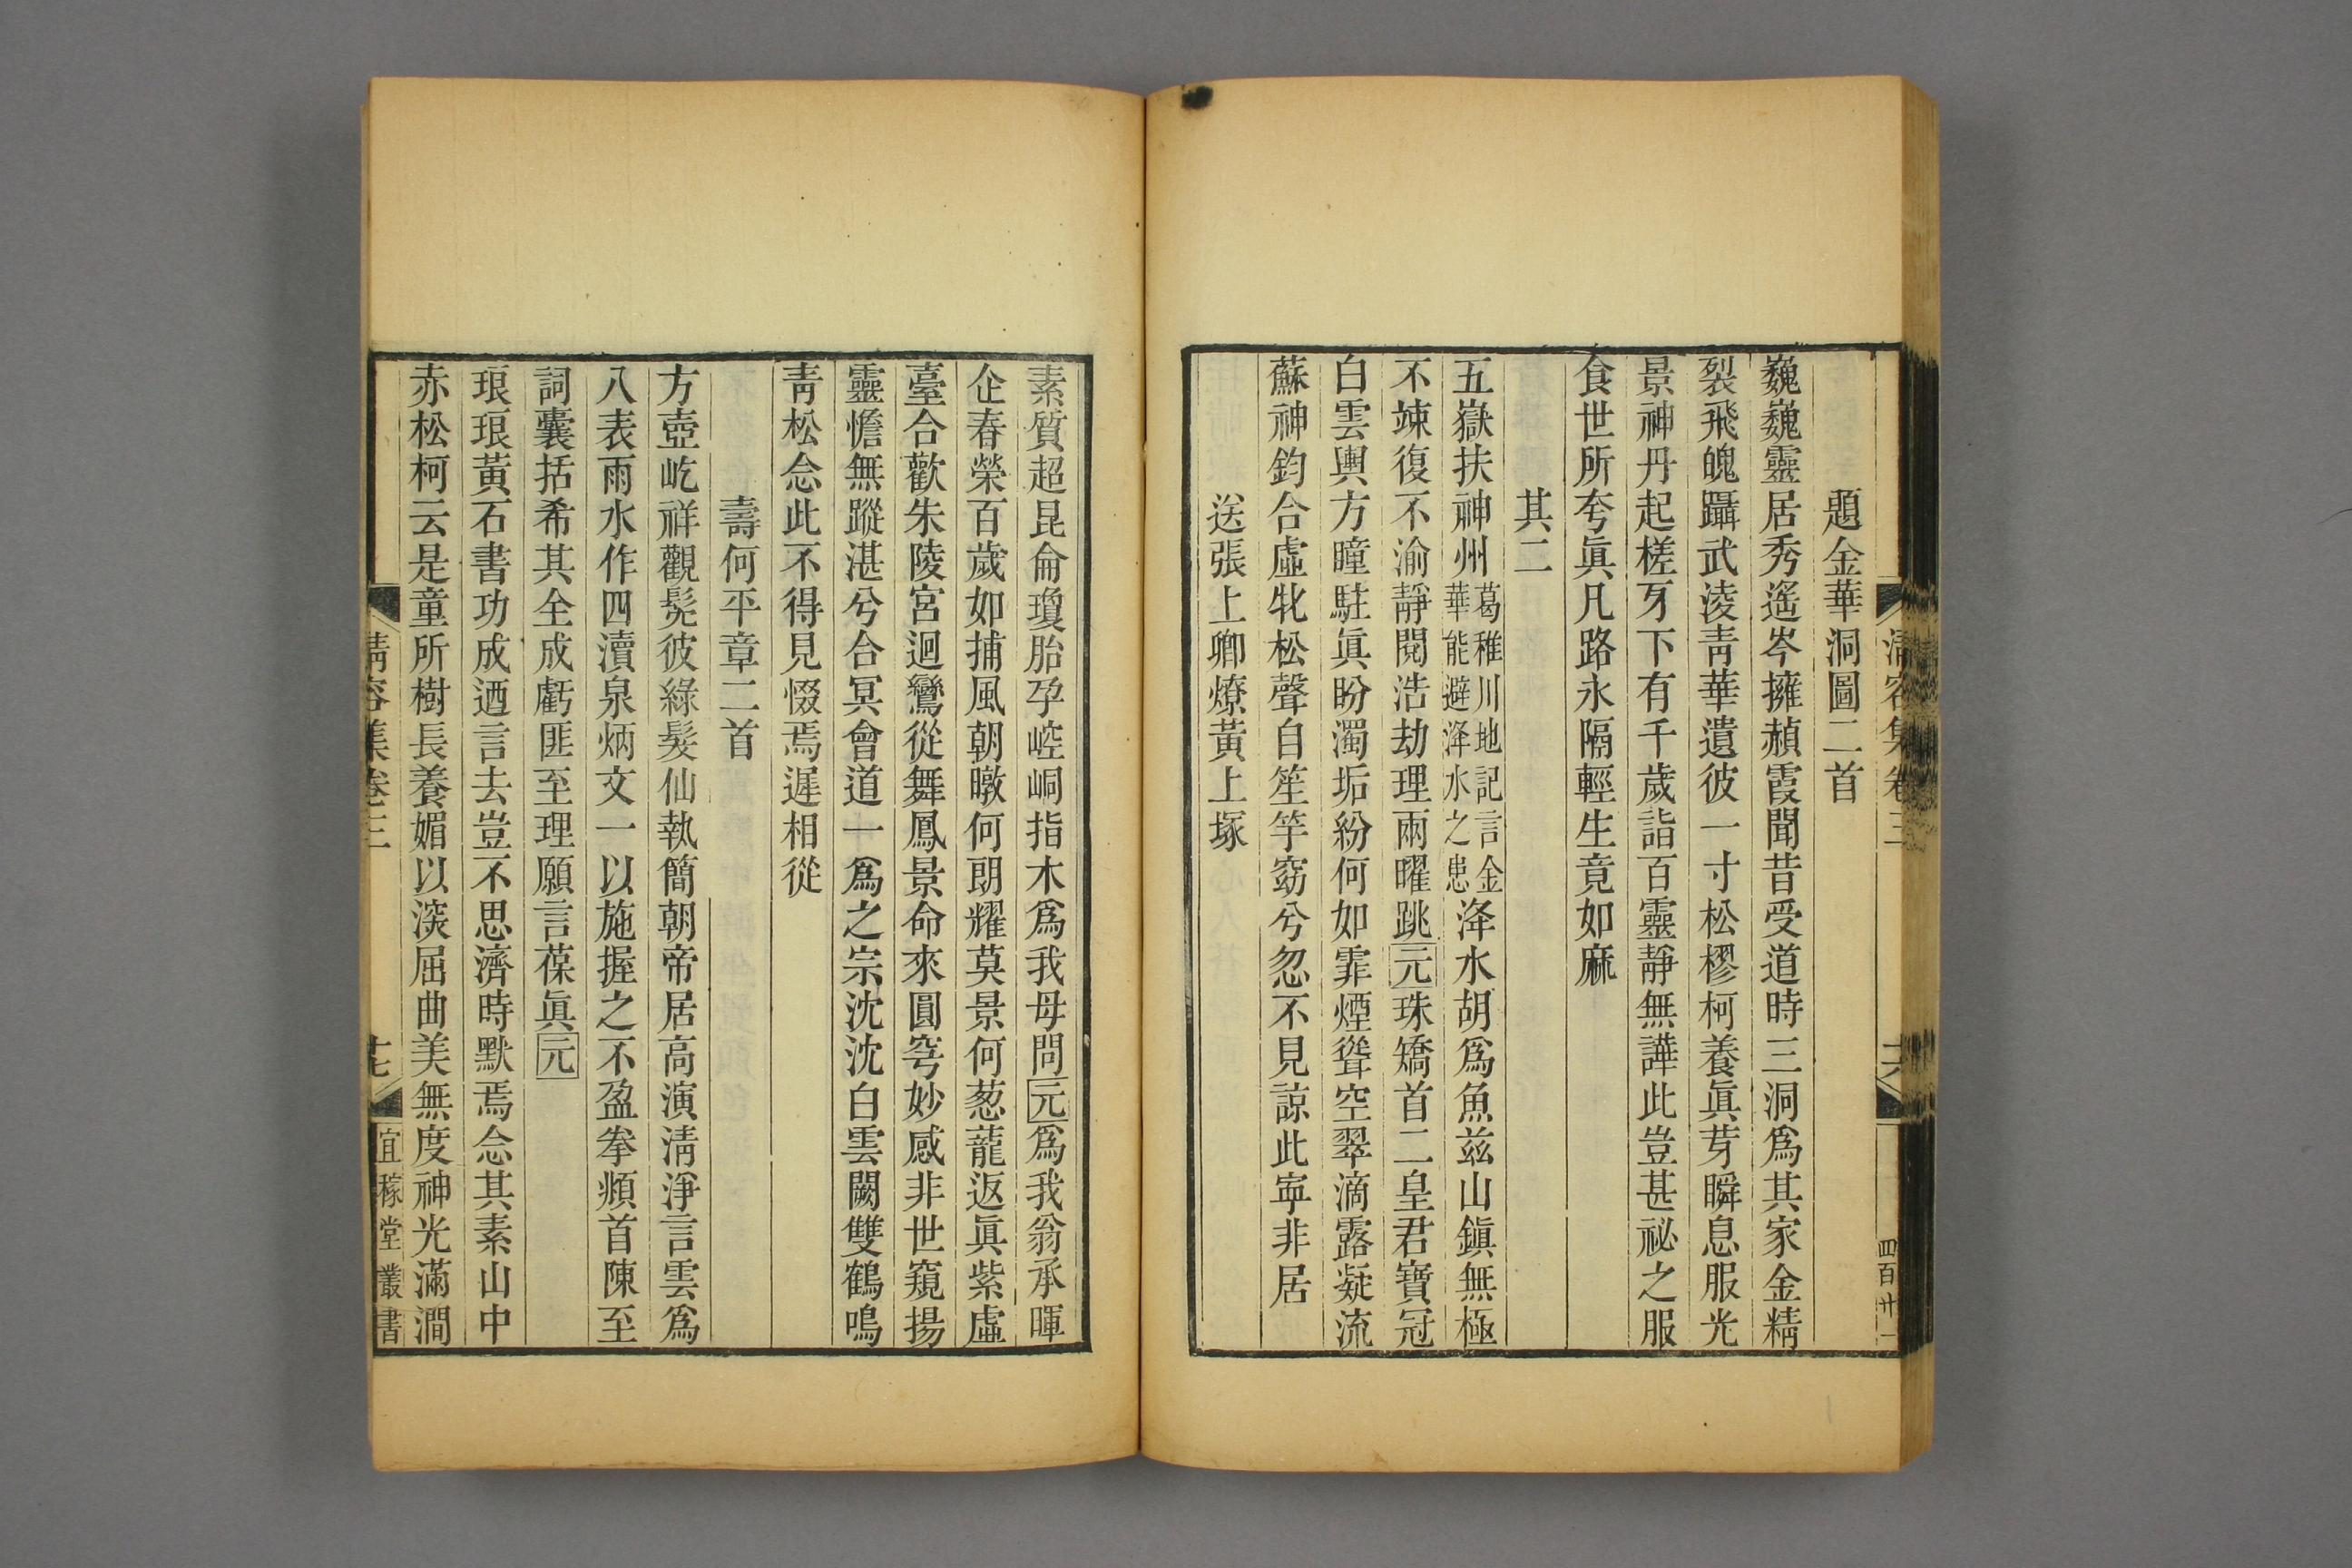 題金華洞圖二首
巍巍靈居秀遙岑擁赬霞聞昔受道時三洞爲其家金精
裂飛魄躡武淩靑華遺彼一寸松樛柯養眞芽瞬息服光
景神丹起槎牙下有千歲詣百靈靜無譁此豈甚祕之服
食世所夸眞凡路永隔輕生竟如麻
其二
五嶽扶神州葛稚川地記言金華能避洚水之患洚水胡爲魚兹山鎭無極
不竦復不渝靜閱浩劫理兩曜跳元珠矯首二皇君寶冠
白雲輿方瞳駐眞盼濁垢紛何如霏煙聳空翠滴露凝流
蘇神鈞合虛牝松聲自笙竽窈兮忽不見諒此寧非居
送張上卿燎黃上塚
素質超昆侖瓊胎孕崆峒指木爲我母問元爲我翁承暉
企春榮百歲如捕風朝暾何朗耀莫景何葱蘢返眞紫虛
臺合歡朱陵宮迴鸞從舞鳳景命來圓穹妙感非世窺揚
靈憺無蹤湛兮合冥會道一爲之宗沈沈白雲闕雙鶴鳴
靑松念此不得見惙焉遲相從
壽何平章二首
方壺屹祥觀髧彼綠髮仙執簡朝帝居高演淸淨言雲爲
八表雨水作四瀆泉炳文一以施握之不盈拳頫首陳至
詞囊括希其全成虧匪至理願言葆眞元
琅琅黃石書功成迺言去豈不思濟時默焉念其素山中
赤松柯云是童所樹長養媚以滋屈曲美無度神光滿澗
清容集卷三
十七
宜稼堂叢書